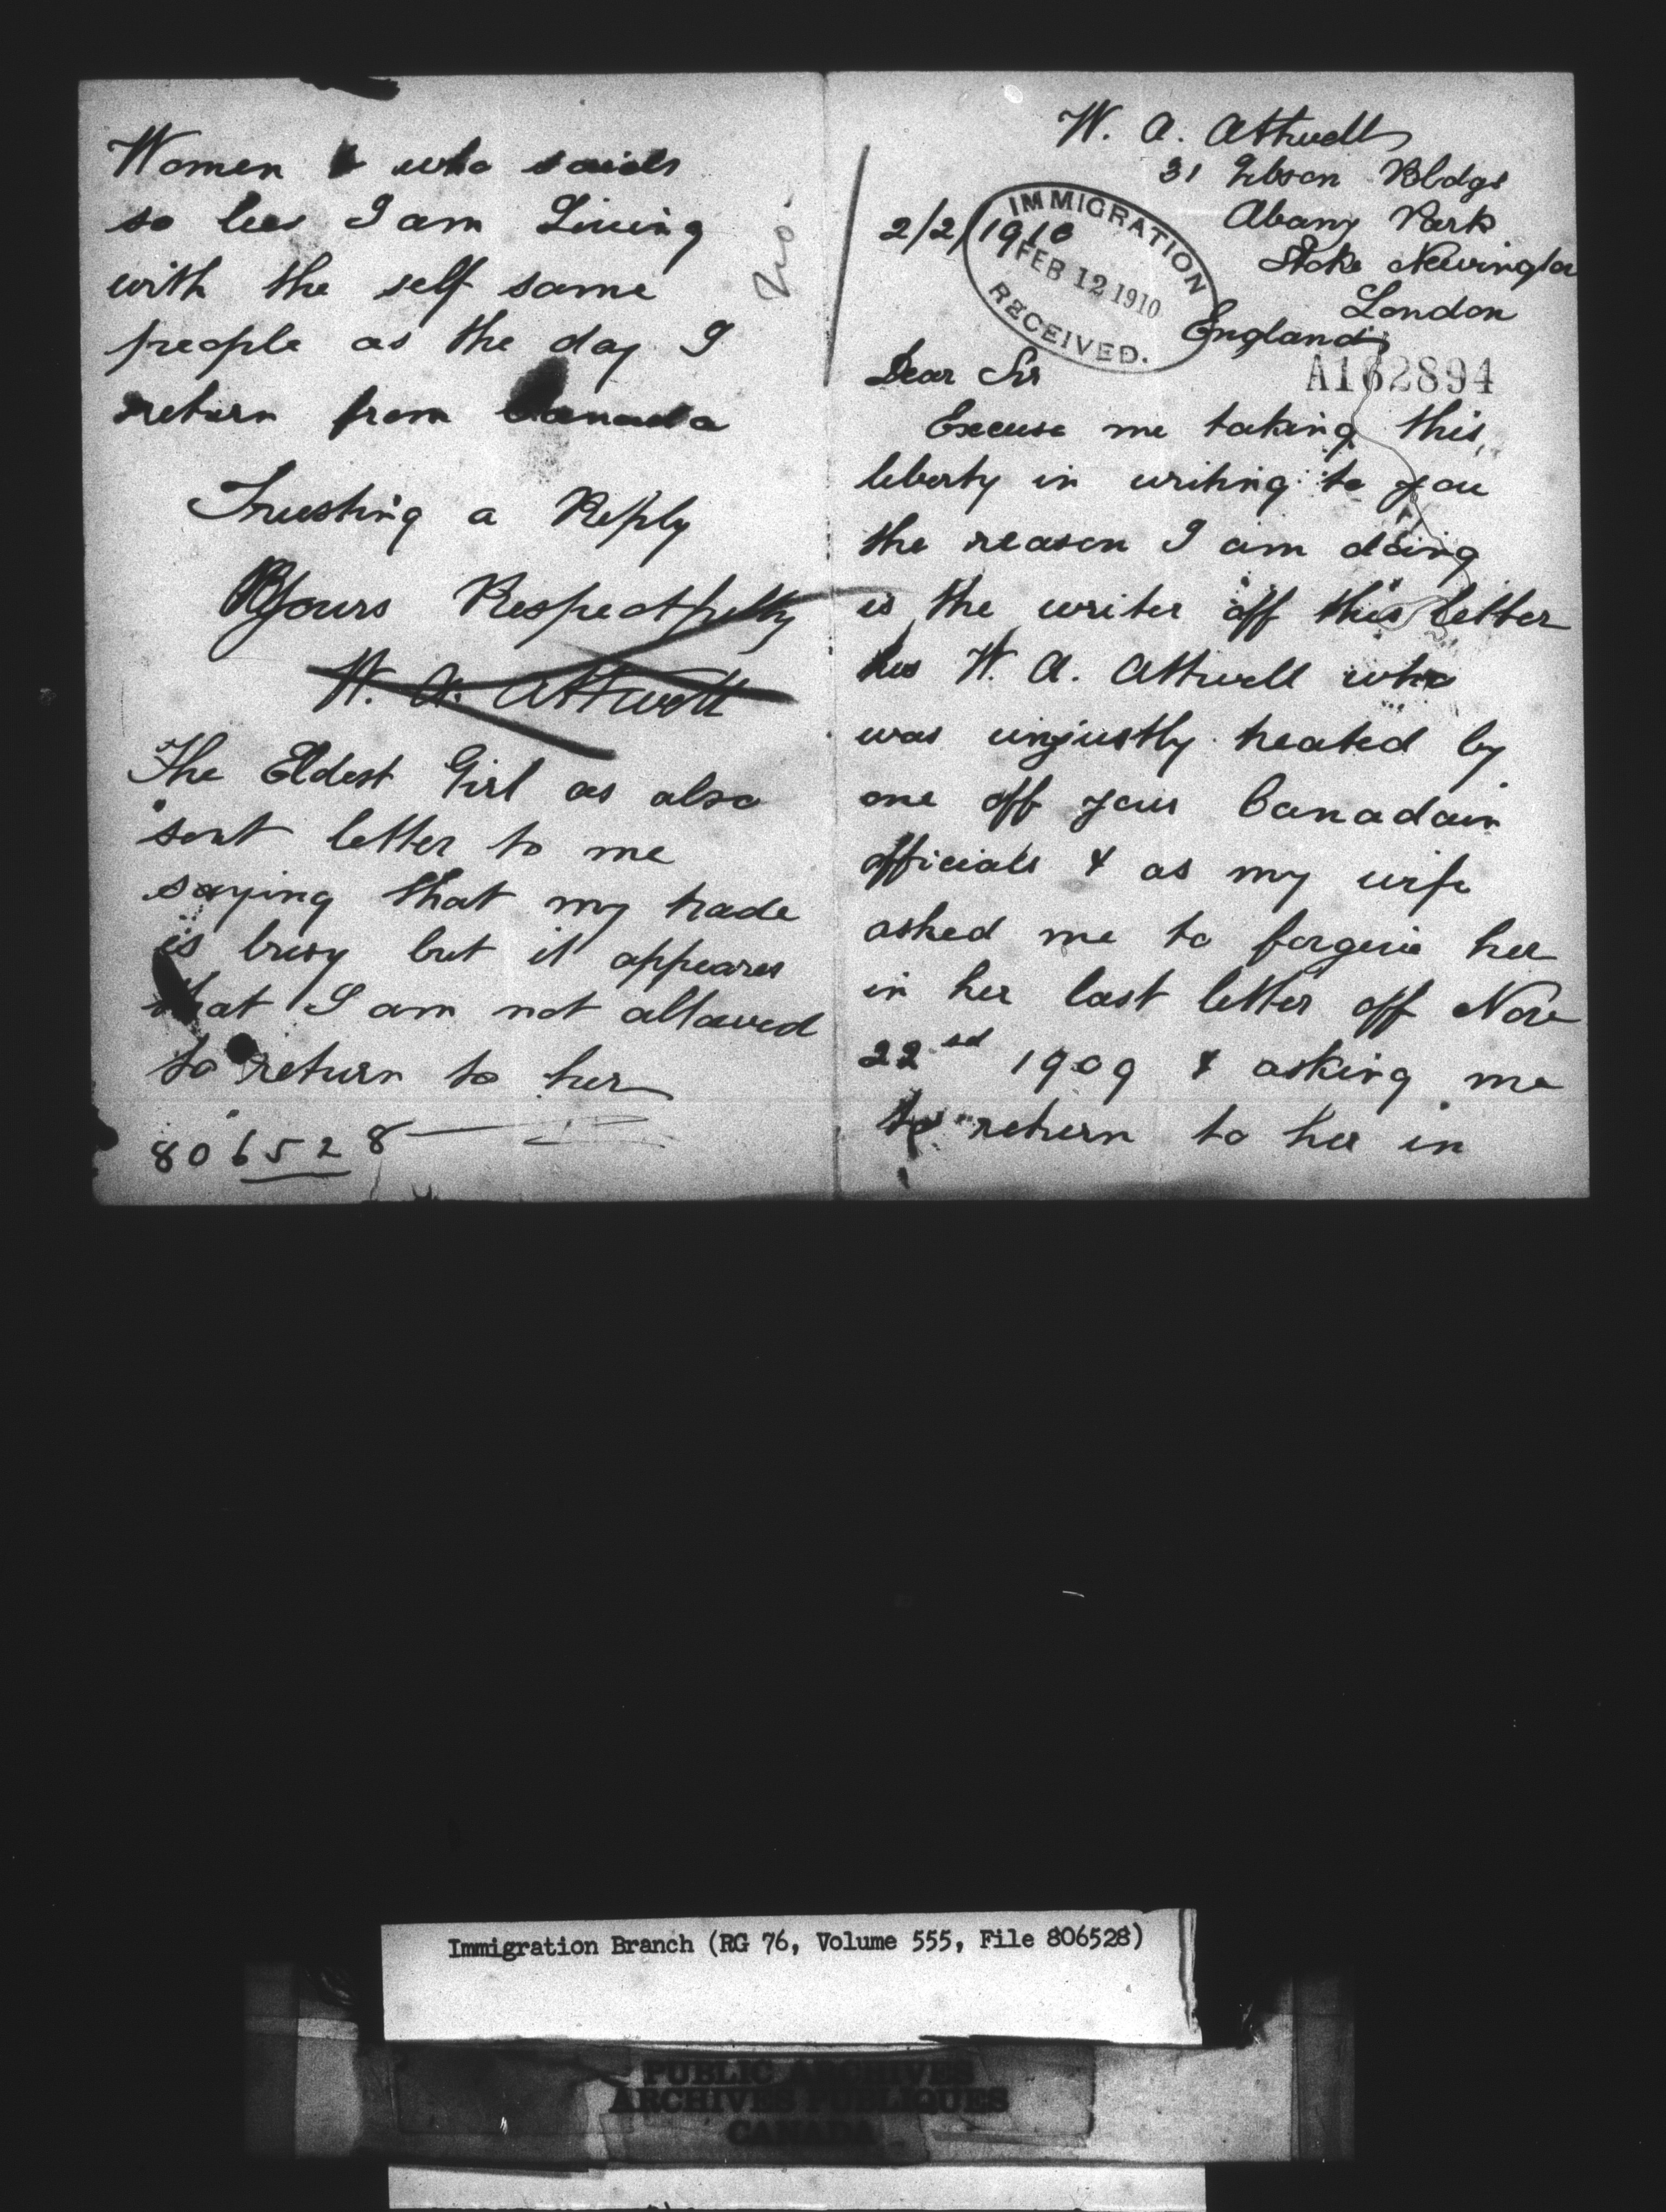 W. A. Attwell
31 Gibson Bldgs
Abany Park
Stoke Newington
London
England
2/2/1910
IMMIGRATION
FEB 12 1910
RECEIVED.
A162894
Dear Sir
Excuse me taking this
leberty in writing to you
the reason I am doing
is the writer off this letter
his W. A. Attwell who
was unjustly treated by
one off your Canadain
officials & as my wife
asked me to forgive her
in her last letter off Nov
22nd 1909 & asking me
to return to her in
Women who
so lies I am Living
with the self same
people as the day I
return from Canada
Trusting a Reply
Yours Respectfully
W. A. Attwell
The Eldest Girl as also
sent letter to me
saying that my trade
is busy but it appeares
that I am not allowed
to return to her
806528
Immigration Branch (RG 76, Volume 555, File 806528)
PUBLIC ARCHIVES
ARCHIVES PUBLIQUES
CANADA